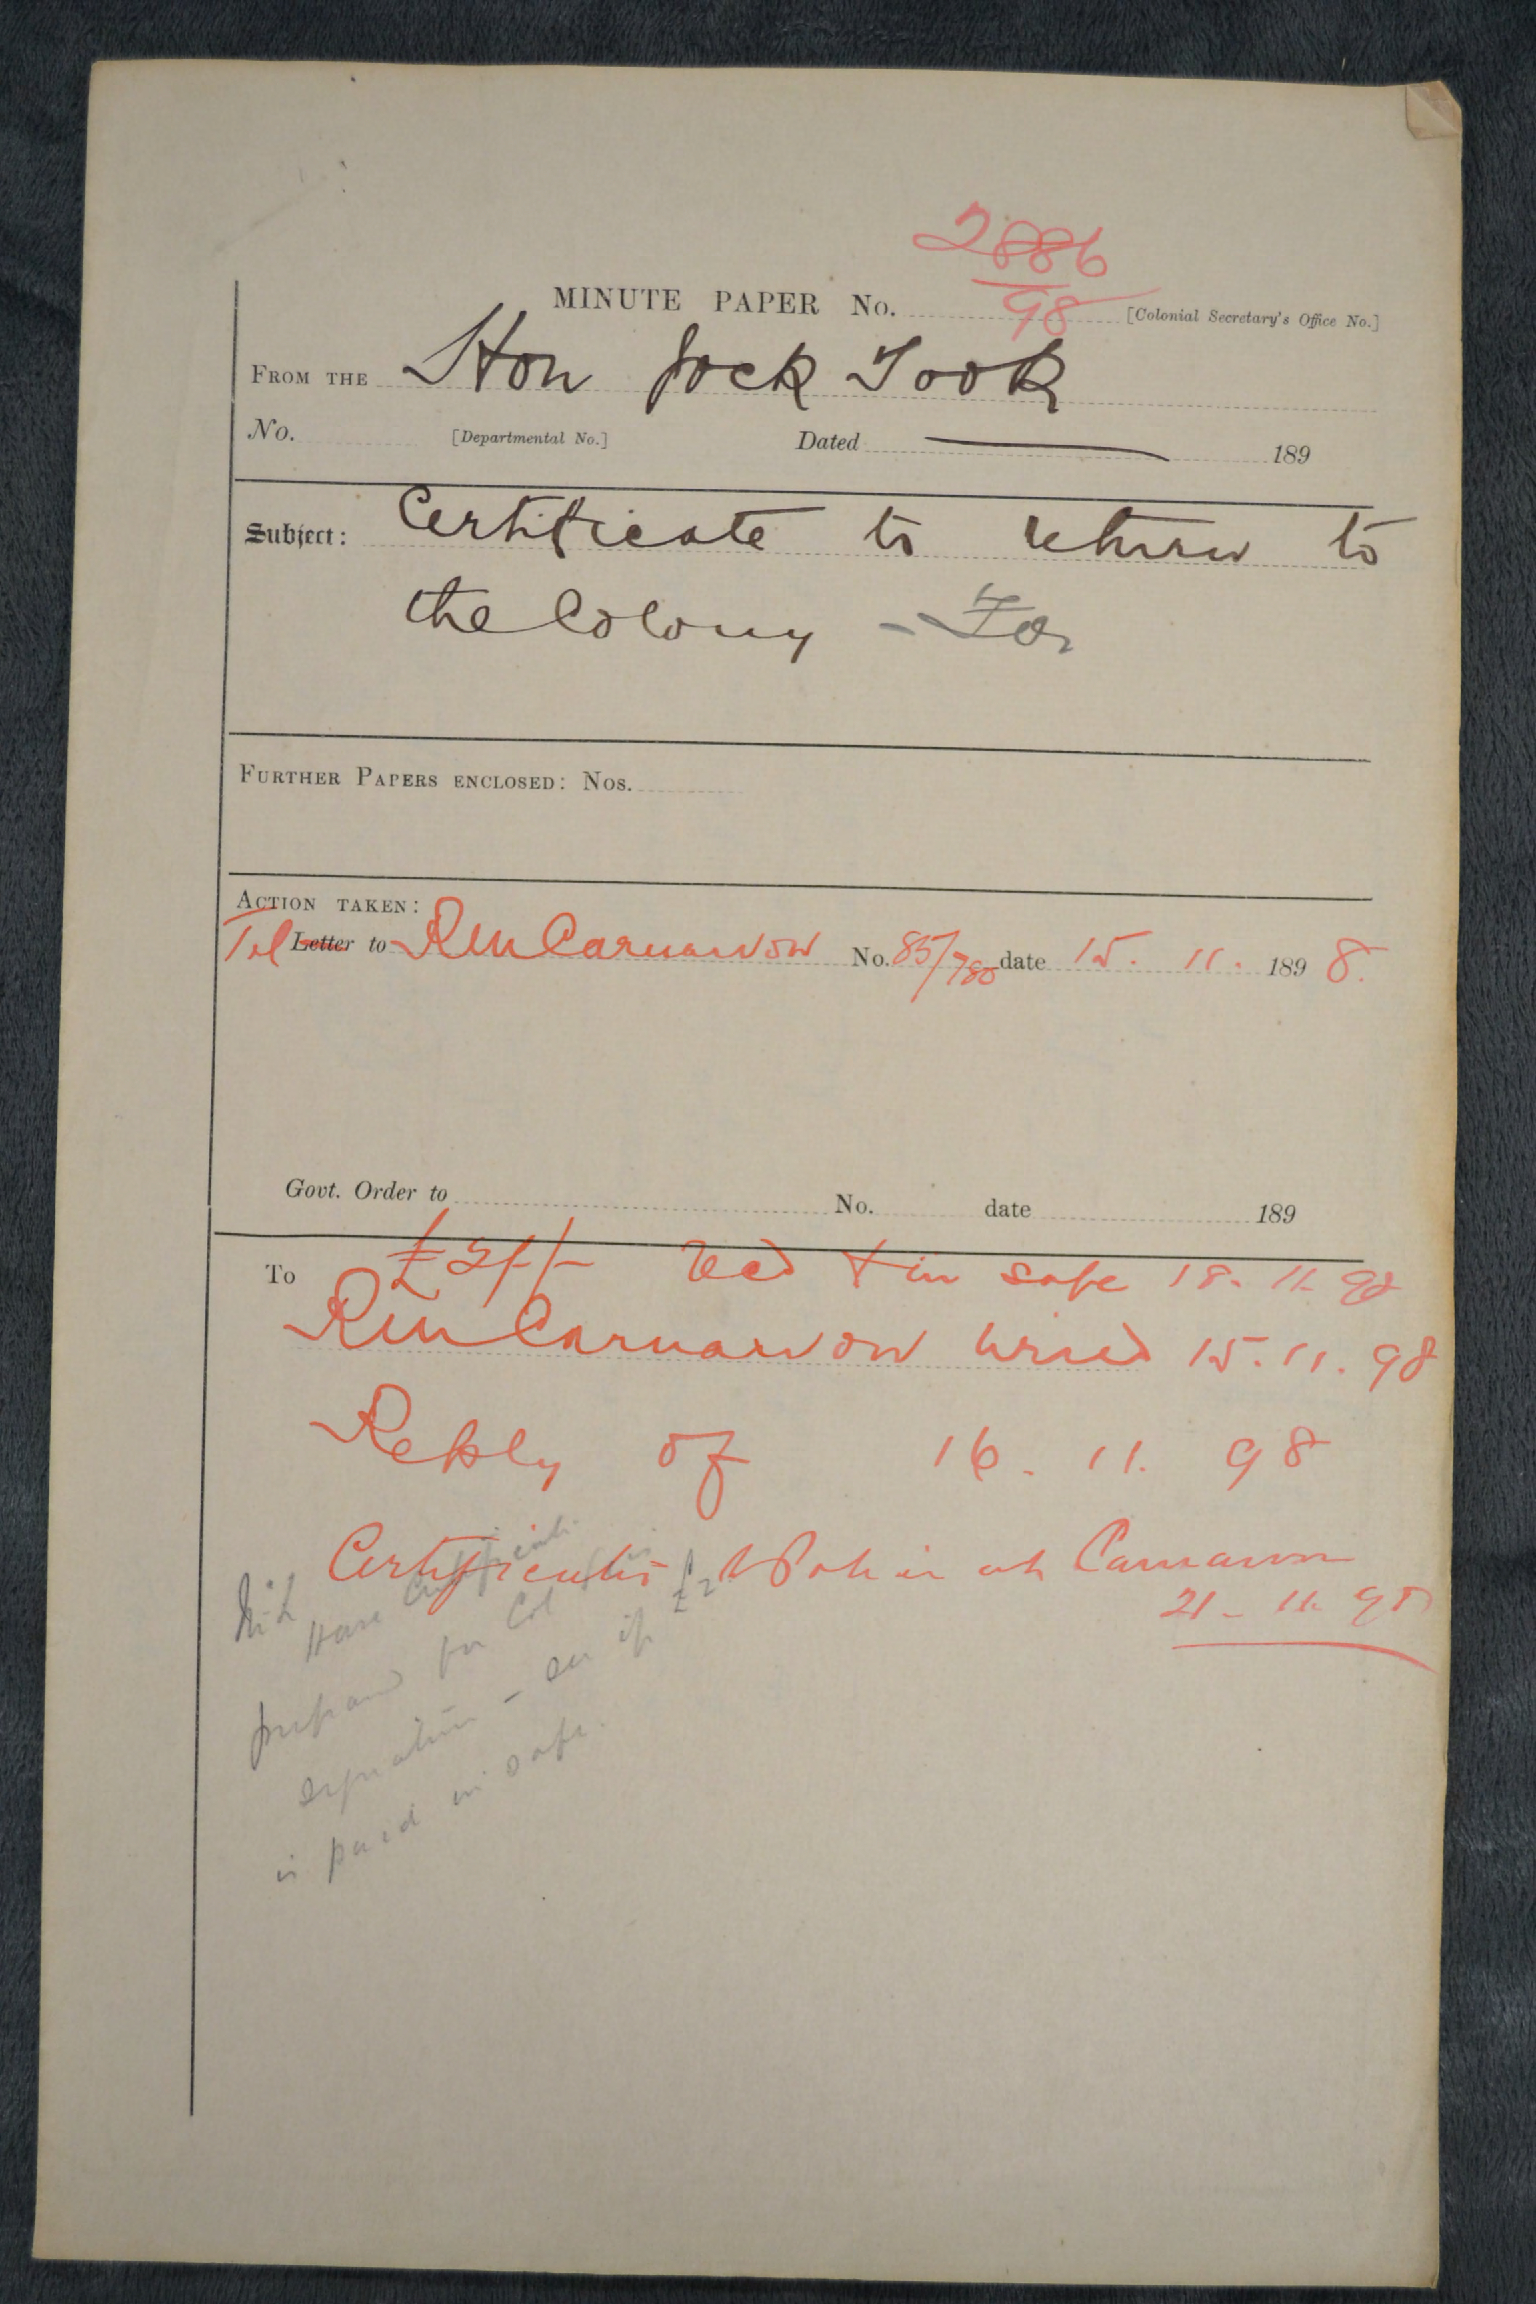 2886
98
MINUTE PAPER No. [Colonial Secretary's Office No.]
FROM THE Hon Jock Took
No. [Departmental No.] Dated 189
Subject: Certificate to return to
the Colony - For
FURTHER PAPERS ENCLOSED: Nos.
ACTION TAKEN:
Tel Letter to RM Carnarvon No. 85/780 date 15. 11. 1898.
Govt. Order to No. date 189
To £2/-/- Recd & in safe 18.11.98
RM Carnarvon wired 15.11.98
Reply of 16.11.98
Certificate to at Carnarvon
21-11-98
Have Certificate
prepared for Col
signature - see if £2
is paid in safe.